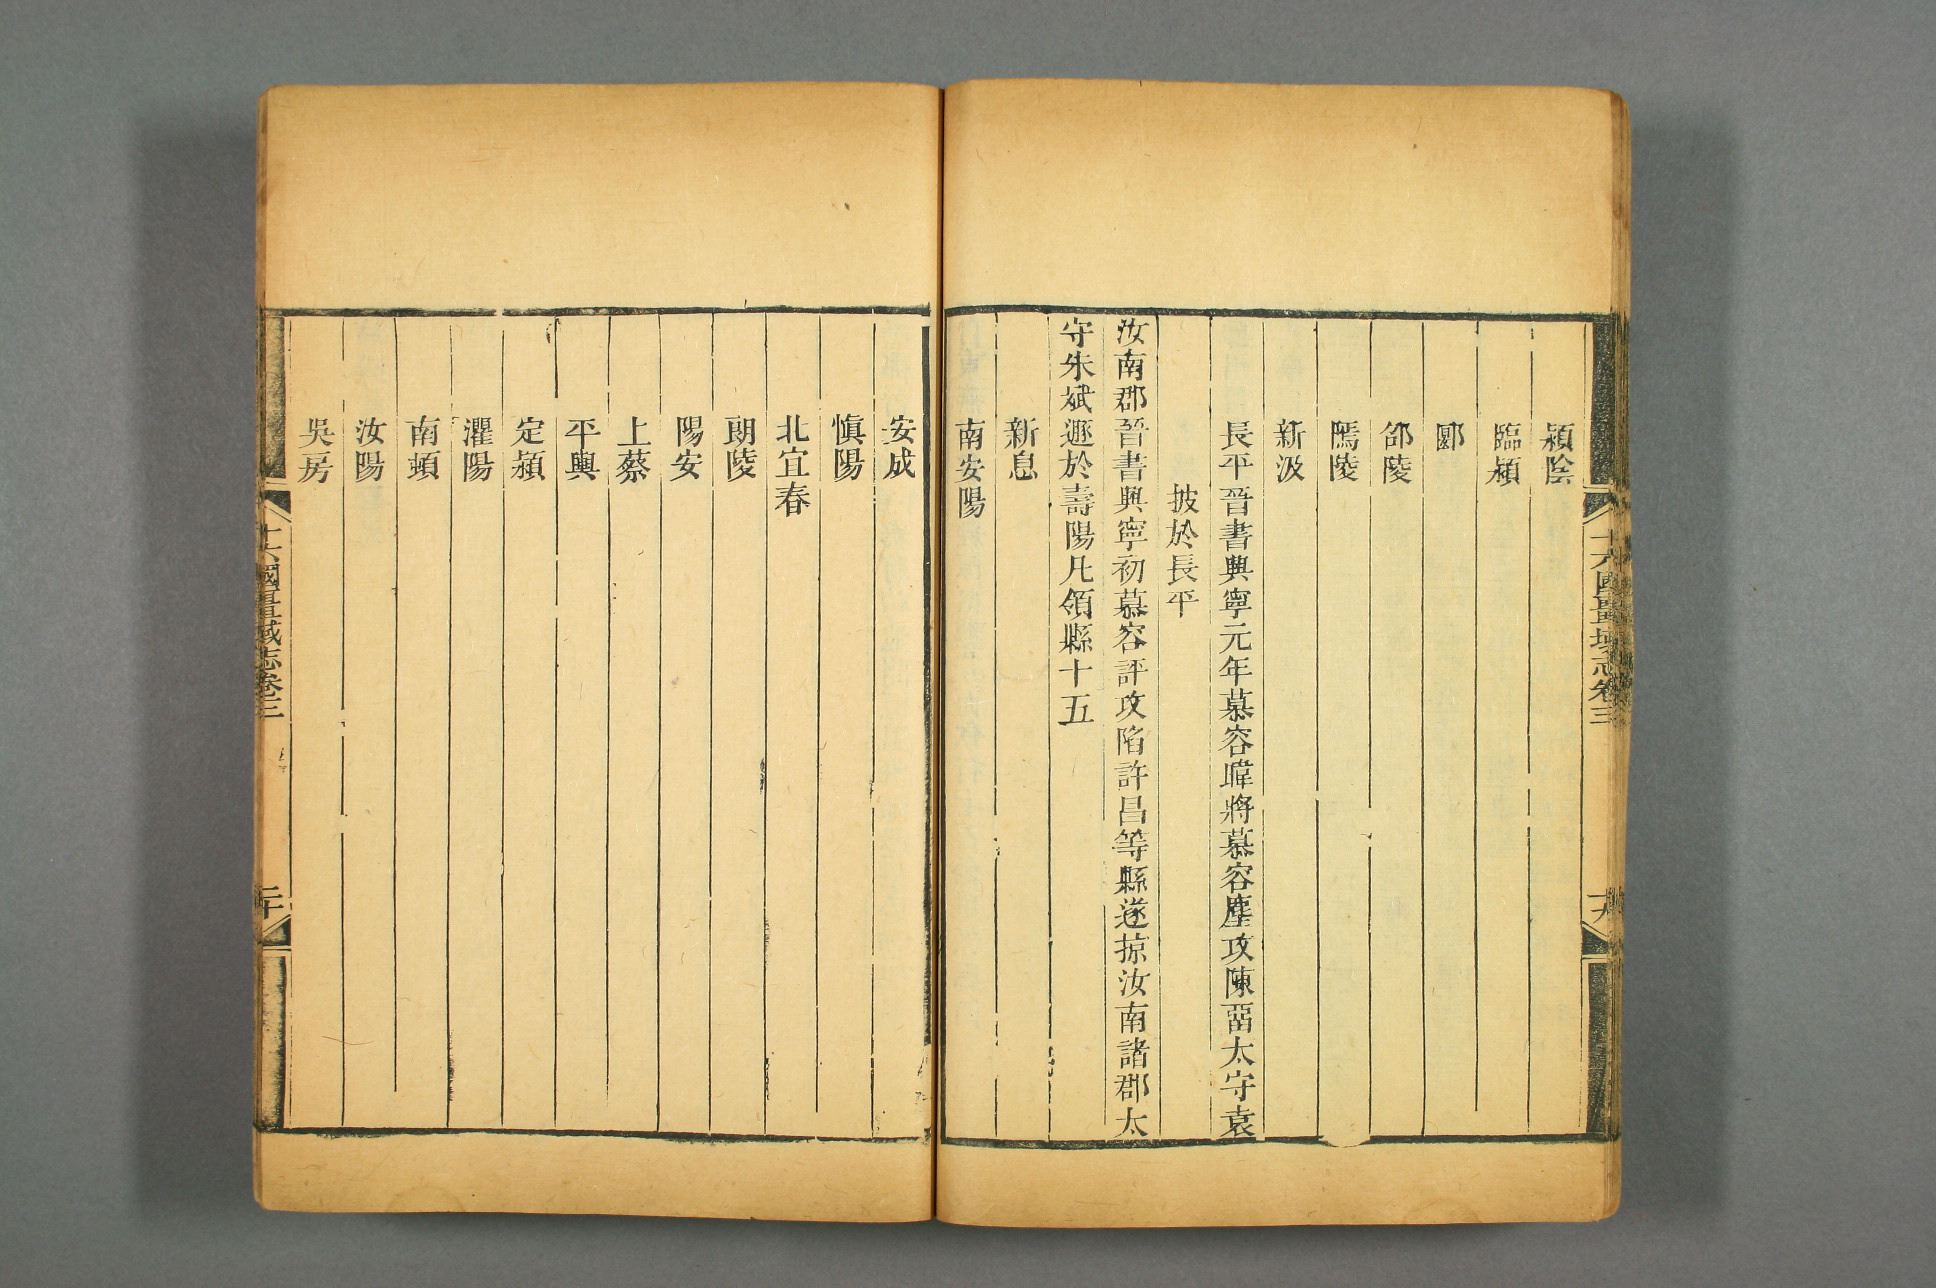 潁陰
臨潁
郾
邵陵
隱陵
新汲
長平晉書興寧元年慕容暐將慕容塵攻陳畱太守袁
披於長平
汝南郡晉書興寧初慕容評攻陷許昌等縣遂掠汝南諸郡太
守朱斌遁於壽陽凡領縣十五
新息
南安陽
安成
慎陽
北宜春
朗陵
陽安
上蔡
平輿
定潁
灈陽
南頓
汝陽
吳房
十六國疆域志卷三
二十